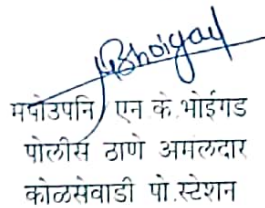 NBhoigad
मपोउपनि एन के.भोईगड
पोलीस ठाणे अमलदार
कोळसेवाडी पो.स्टेशन